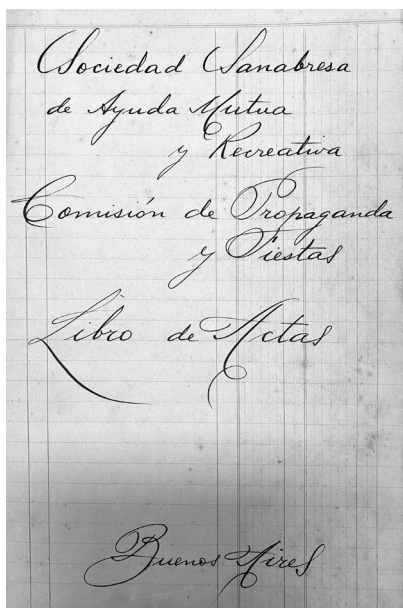 Sociedad Sanabresa
de Ayuda Mutua
y Recreativa
Comisión de Propaganda
y Fiestas
Libro de Actas
Buenos Aires